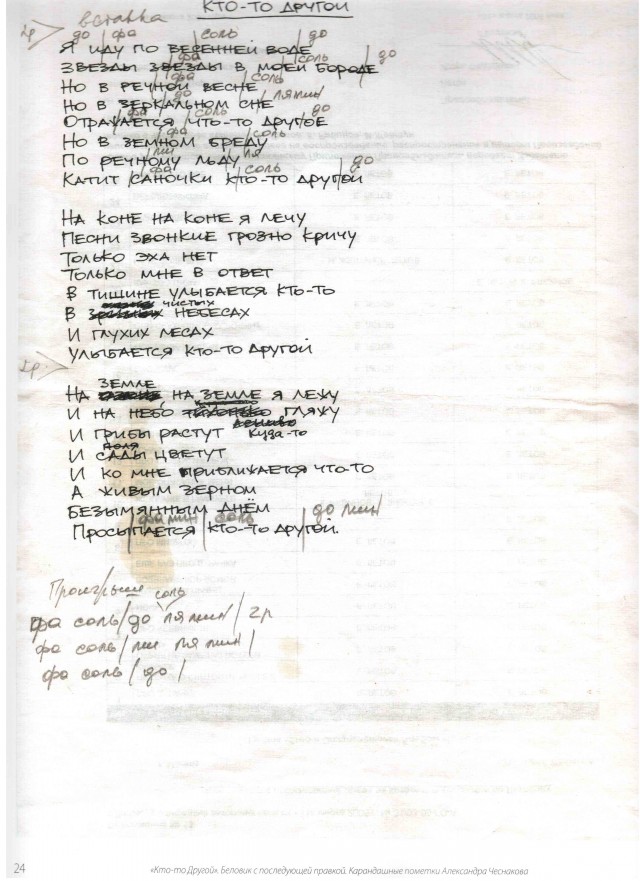 КТО-ТО ДРУГОЙ
2р вставка
до / фа / соль / до
Я иду по весенней воде
фа / соль / до
Звезды звезды в моей бороде
фа соль
Но в речной весне
ми до ля мин
Но в зеркальном сне
фа соль до
Отражается что-то другое
фа соль
Но в земном бреду
ми ля
По речному льду
фа соль до
Катит саночки кто-то другой
На коне на коне я лечу
Песни звонкие грозно кричу
Только эха нет
Только мне в ответ
В тишине улыбается кто-то
чистых
В небесах
И глухих лесах
Улыбается кто-то другой
2р.
земле
На на земле я лежу
И на небо гляжу
И грибы растут куда-то
поля
И сады цветут
И ко мне приближается что-то
А живым зерном
Безымянным днём
фа мин соль до мин
Просыпается кто-то другой.
Проигрыш соль
фа соль / до ля мин / 2р
фа соль / ми ля мин /
фа соль / до /
24
«Кто-то Другой». Беловик с последующей правкой. Карандашные пометки Александра Чеснакова